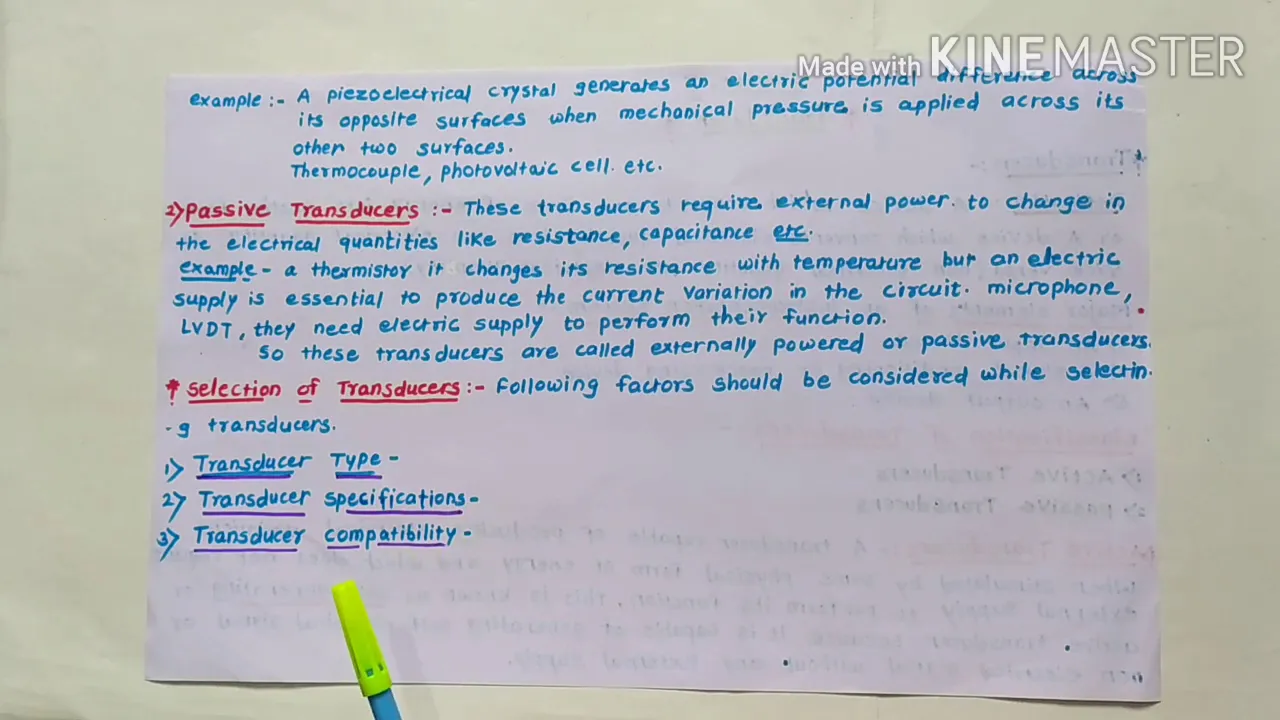 Made with KINEMASTER
example :- A piezoelectrical crystal generates an electric potential difference across
its opposite surfaces when mechanical pressure is applied across its
other two surfaces.
Thermocouple, photovoltaic cell. etc.
2) Passive Transducers :- These transducers require external power to change in
the electrical quantities like resistance, capacitance etc.
example - a thermistor it changes its resistance with temperature but an electric
supply is essential to produce the current variation in the circuit. microphone,
LVDT, they need electric supply to perform their function.
So these transducers are called externally powered or passive transducers.
* Selection of Transducers :- Following factors should be considered while selectin
-g transducers.
1) Transducer Type -
2) Transducer specifications -
3) Transducer compatibility -